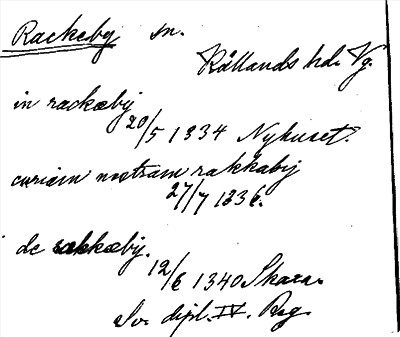 Rackeby sn.
Kållands hd. Vg.
in rackæby
20/5 1334 Nyhuset.
curiam nostram rakkaby
27/7 1336.
de rakkæby.
12/6 1340 Skara.
Sv. dipl. IV. Reg.